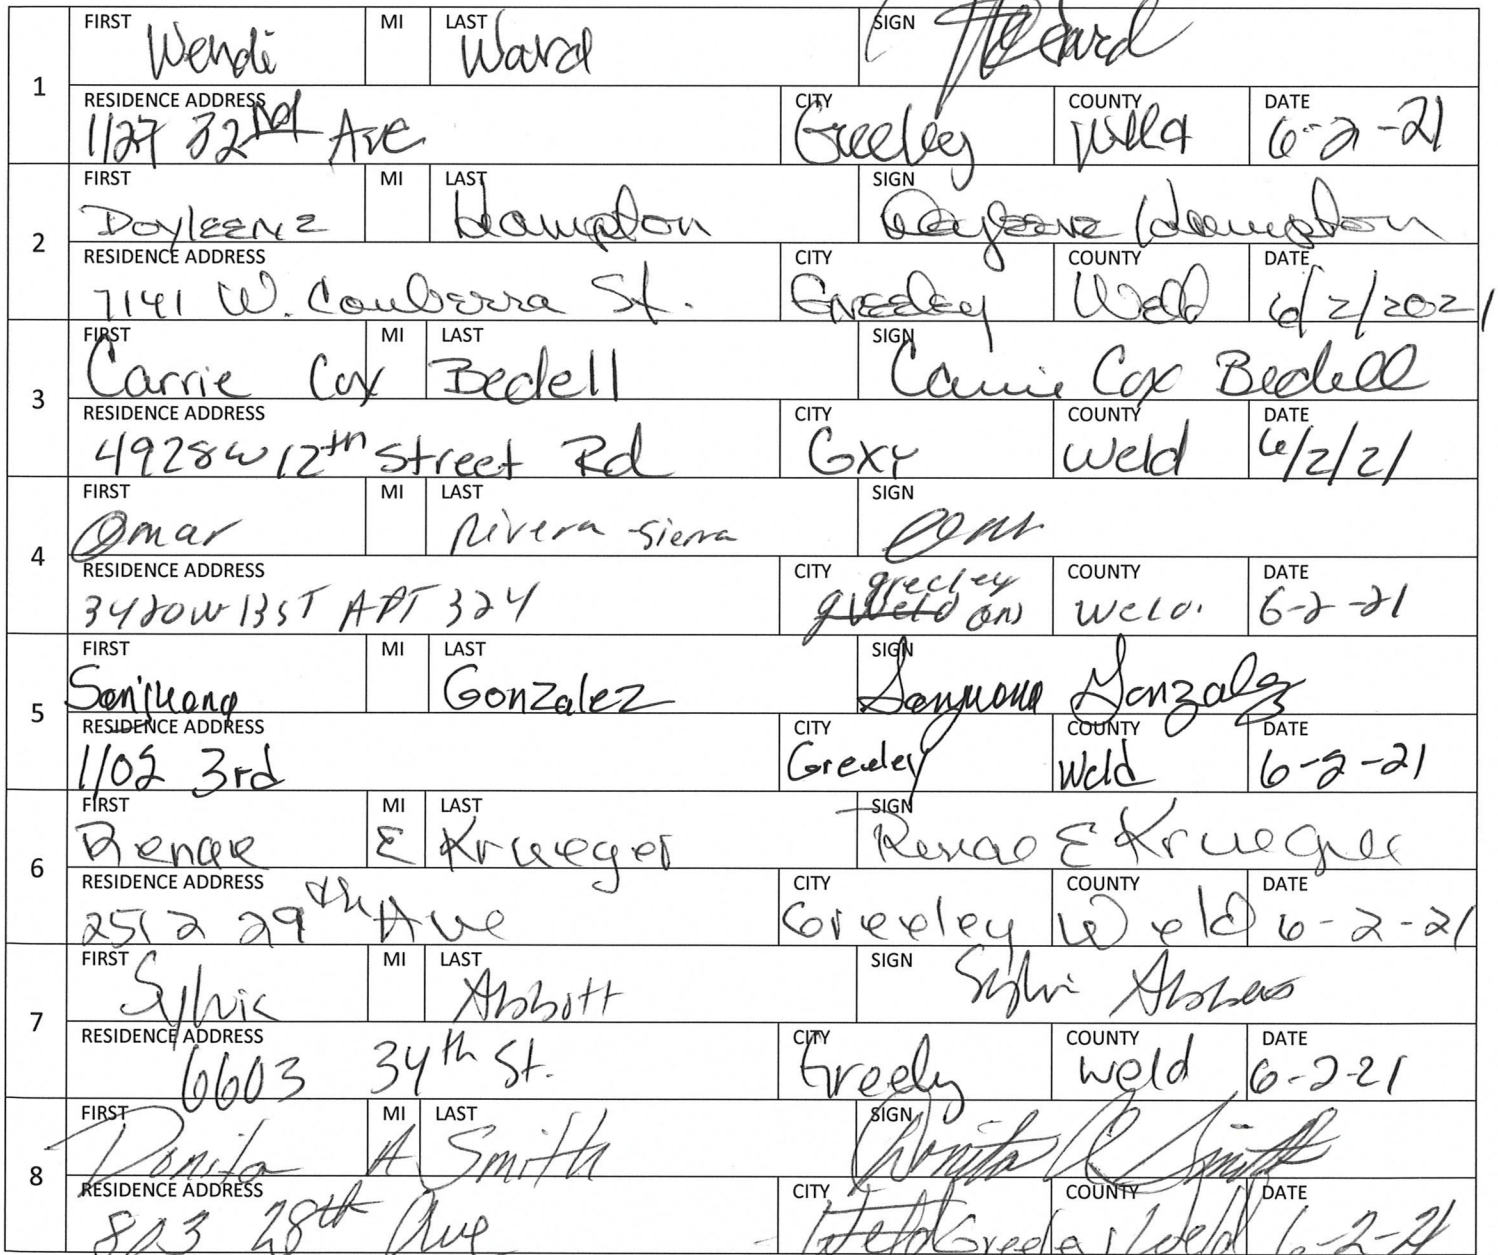 FIRST Wendi MI LAST Ward SIGN Ward
1
RESIDENCE ADDRESS 1127 32nd Ave CITY Greeley COUNTY Weld DATE 6-2-21
FIRST Doyleene MI LAST Hampton SIGN Doyleene Hampton
2
RESIDENCE ADDRESS 7141 W. Canberra St. CITY Greeley COUNTY Weld DATE 6/2/2021
FIRST Carrie MI Cox LAST Bedell SIGN Carrie Cox Bedell
3
RESIDENCE ADDRESS 4928 W 12th Street Rd CITY GXY COUNTY Weld DATE 6/2/21
FIRST Omar MI LAST Rivera-Sierra SIGN Omar
4
RESIDENCE ADDRESS 3420 W 13 ST APT 324 CITY greeley COUNTY Weld. DATE 6-2-21
FIRST Sanjuana MI LAST Gonzalez SIGN Sanjuana Gonzalez
5
RESIDENCE ADDRESS 1102 3rd CITY Greeley COUNTY Weld DATE 6-2-21
FIRST Renae MI E LAST Krueger SIGN Renae E Krueger
6
RESIDENCE ADDRESS 2512 29th Ave CITY Greeley COUNTY Weld DATE 6-2-21
FIRST Sylvia MI LAST Abbott SIGN Sylvi
7
RESIDENCE ADDRESS 6603 34th St. CITY Greely COUNTY Weld DATE 6-2-21
FIRST Donita MI A LAST Smith SIGN Donita A Smith
8
RESIDENCE ADDRESS 823 28th Ave CITY Greeley COUNTY Weld DATE 6-2-21